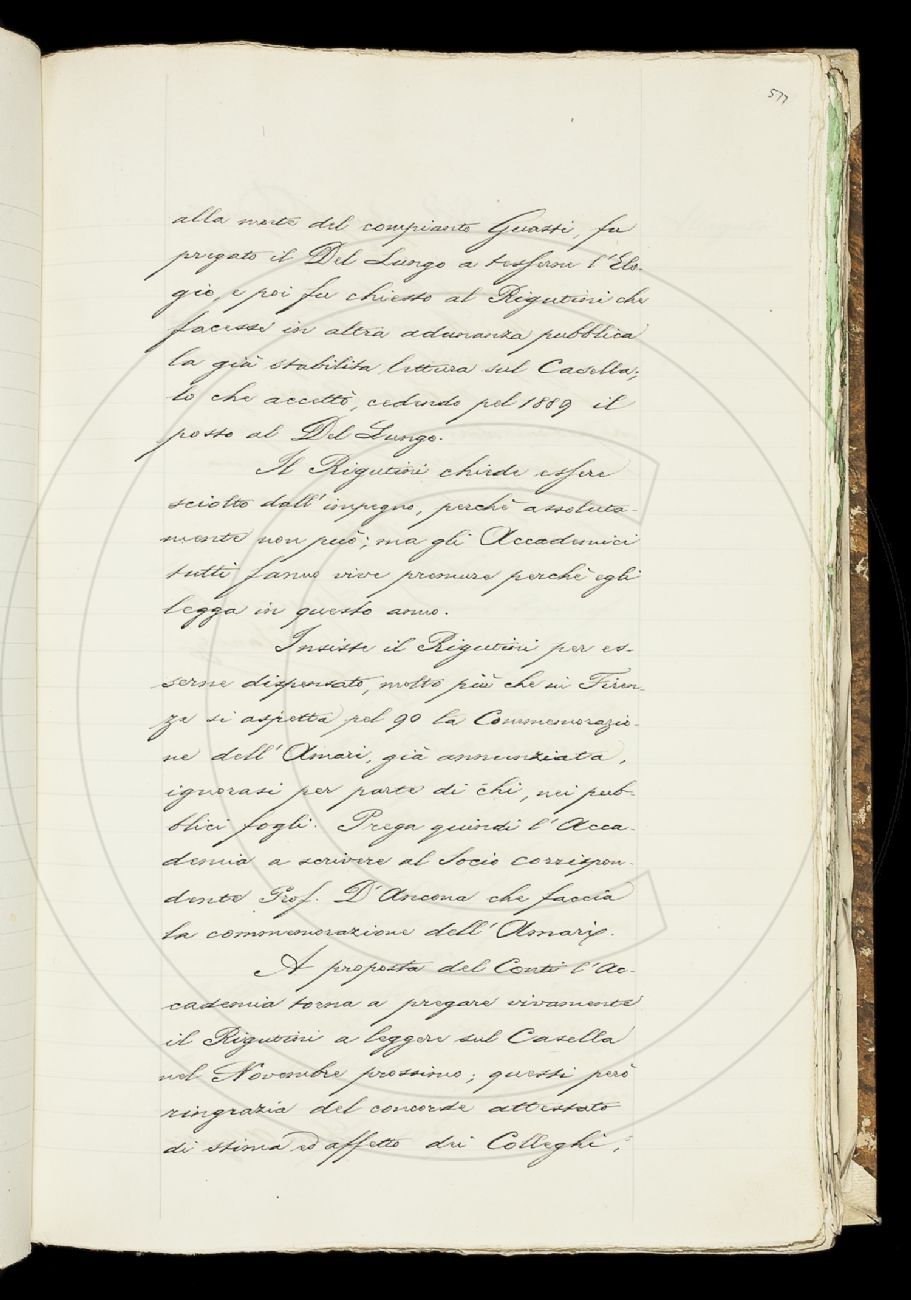 577
alla morte del compianto Guasti, fu
pregato il Del Lungo a tesserne l'Elo-
gio, e poi fu chiesto al Rigutini che
facesse in altra adunanza pubblica
la già stabilita lettura sul Casella;
lo che accettò, cedendo pel 1889 il
posto al Del Lungo.
Il Rigutini chiede essere
sciolto dall'impegno, perchè assoluta-
mente non può; ma gli Accademici
tutti fanno vive premure perchè egli
legga in questo anno.
Insiste il Rigutini per es-
serne dispensato, molto più che in Firen-
ze si aspetta pel 90 la Commemorazio-
ne dell'Amari, già annunziata,
ignorasi per parte di chi, nei pub-
blici fogli. Prega quindi l'Acca-
demia a scrivere al Socio corrispon-
dente Prof. D'Ancona che faccia
la commemorazione dell'Amari.
A proposta del Conti l'Ac-
cademia torna a pregare vivamente
il Rigutini a leggere sul Casella
nel Novembre prossimo; questi però
ringrazia del concorde attestato
di stima ed affetto dei Colleghi;